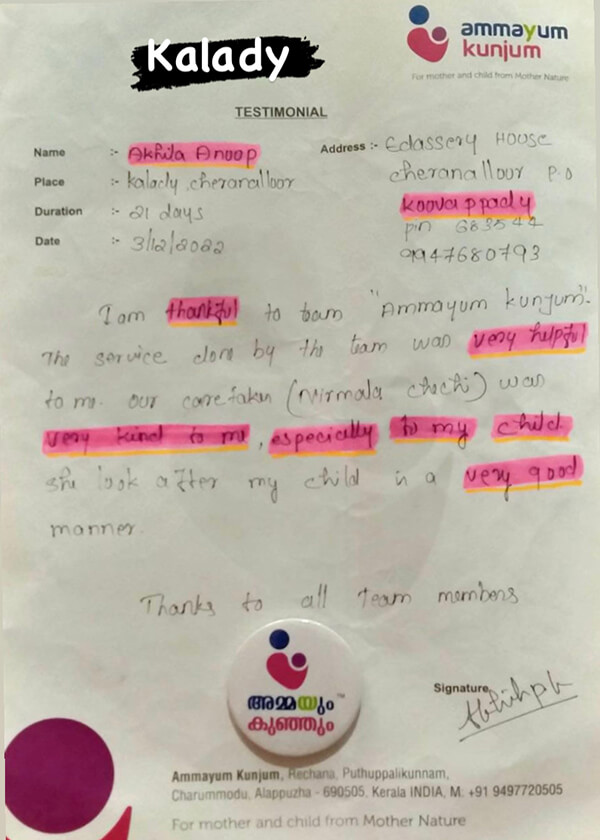 Kalady
ammayum
kunjum
For mother and child from Mother Nature
TESTIMONIAL
Name :- Akhila Anoop
Place :- kalady, cheranalloor
Duration :- 21 days
Date :- 3/12/2022
Address :- Edassery House
cheranalloor P.O
koovappady
pin 683544
9947680793
I am thankful to team "Ammayum kunjum".
The service done by the team was very helpful
to me. our caretaker (Nirmala chechi) was
very kind to me, especially to my child.
she look after my child in a very good
manner.
Thanks to all Team members
അമ്മയും™
കുഞ്ഞും
Signature
Ammayum Kunjum, Rechana, Puthuppalikunnam,
Charummodu, Alappuzha - 690505. Kerala INDIA, M: +91 9497720505
For mother and child from Mother Nature